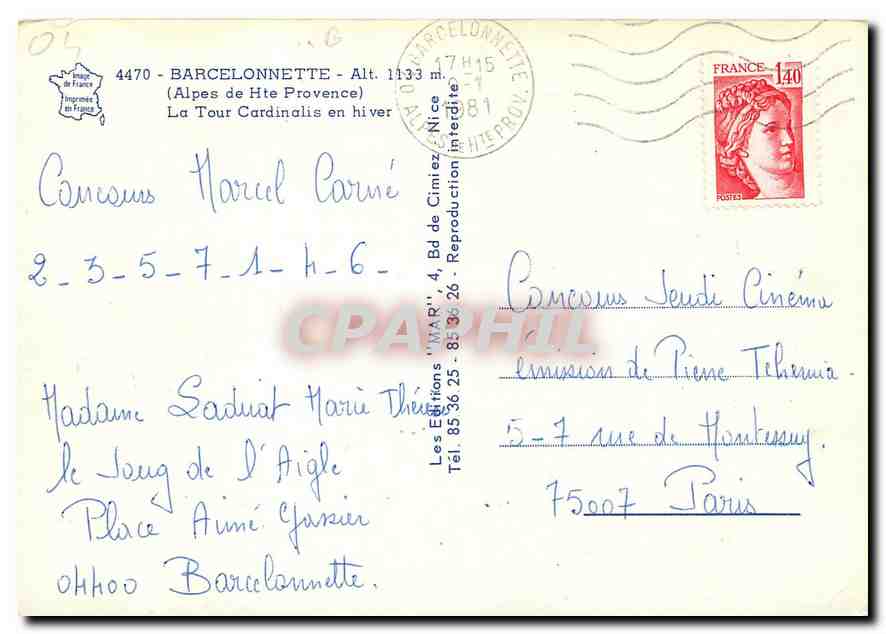 04
Image
de France
Imprimée
en France
4470 - BARCELONNETTE - Alt. 1133 m.
(Alpes de Hte Provence)
La Tour Cardinalis en hiver
04 BARCELONNETTE
17H15
1981
ALPES DE HTE PROV.
FRANCE 1,40
POSTES
Concours Marcel Carné
2-3-5-7-1-4-6-
Madame Marie Thérèse
le Joug de l'Aigle
Place Aimé Gassier
04400 Barcelonnette.
Les Editions "MAR", 4, Bd de Cimiez, Nice
Tél. 85 36 25 - 85 36 26 - Reproduction interdite
Concours Jeudi Cinéma
émission de Pierre Tchernia
5-7 rue de Montessuy.
75007 Paris
CPAPHIL